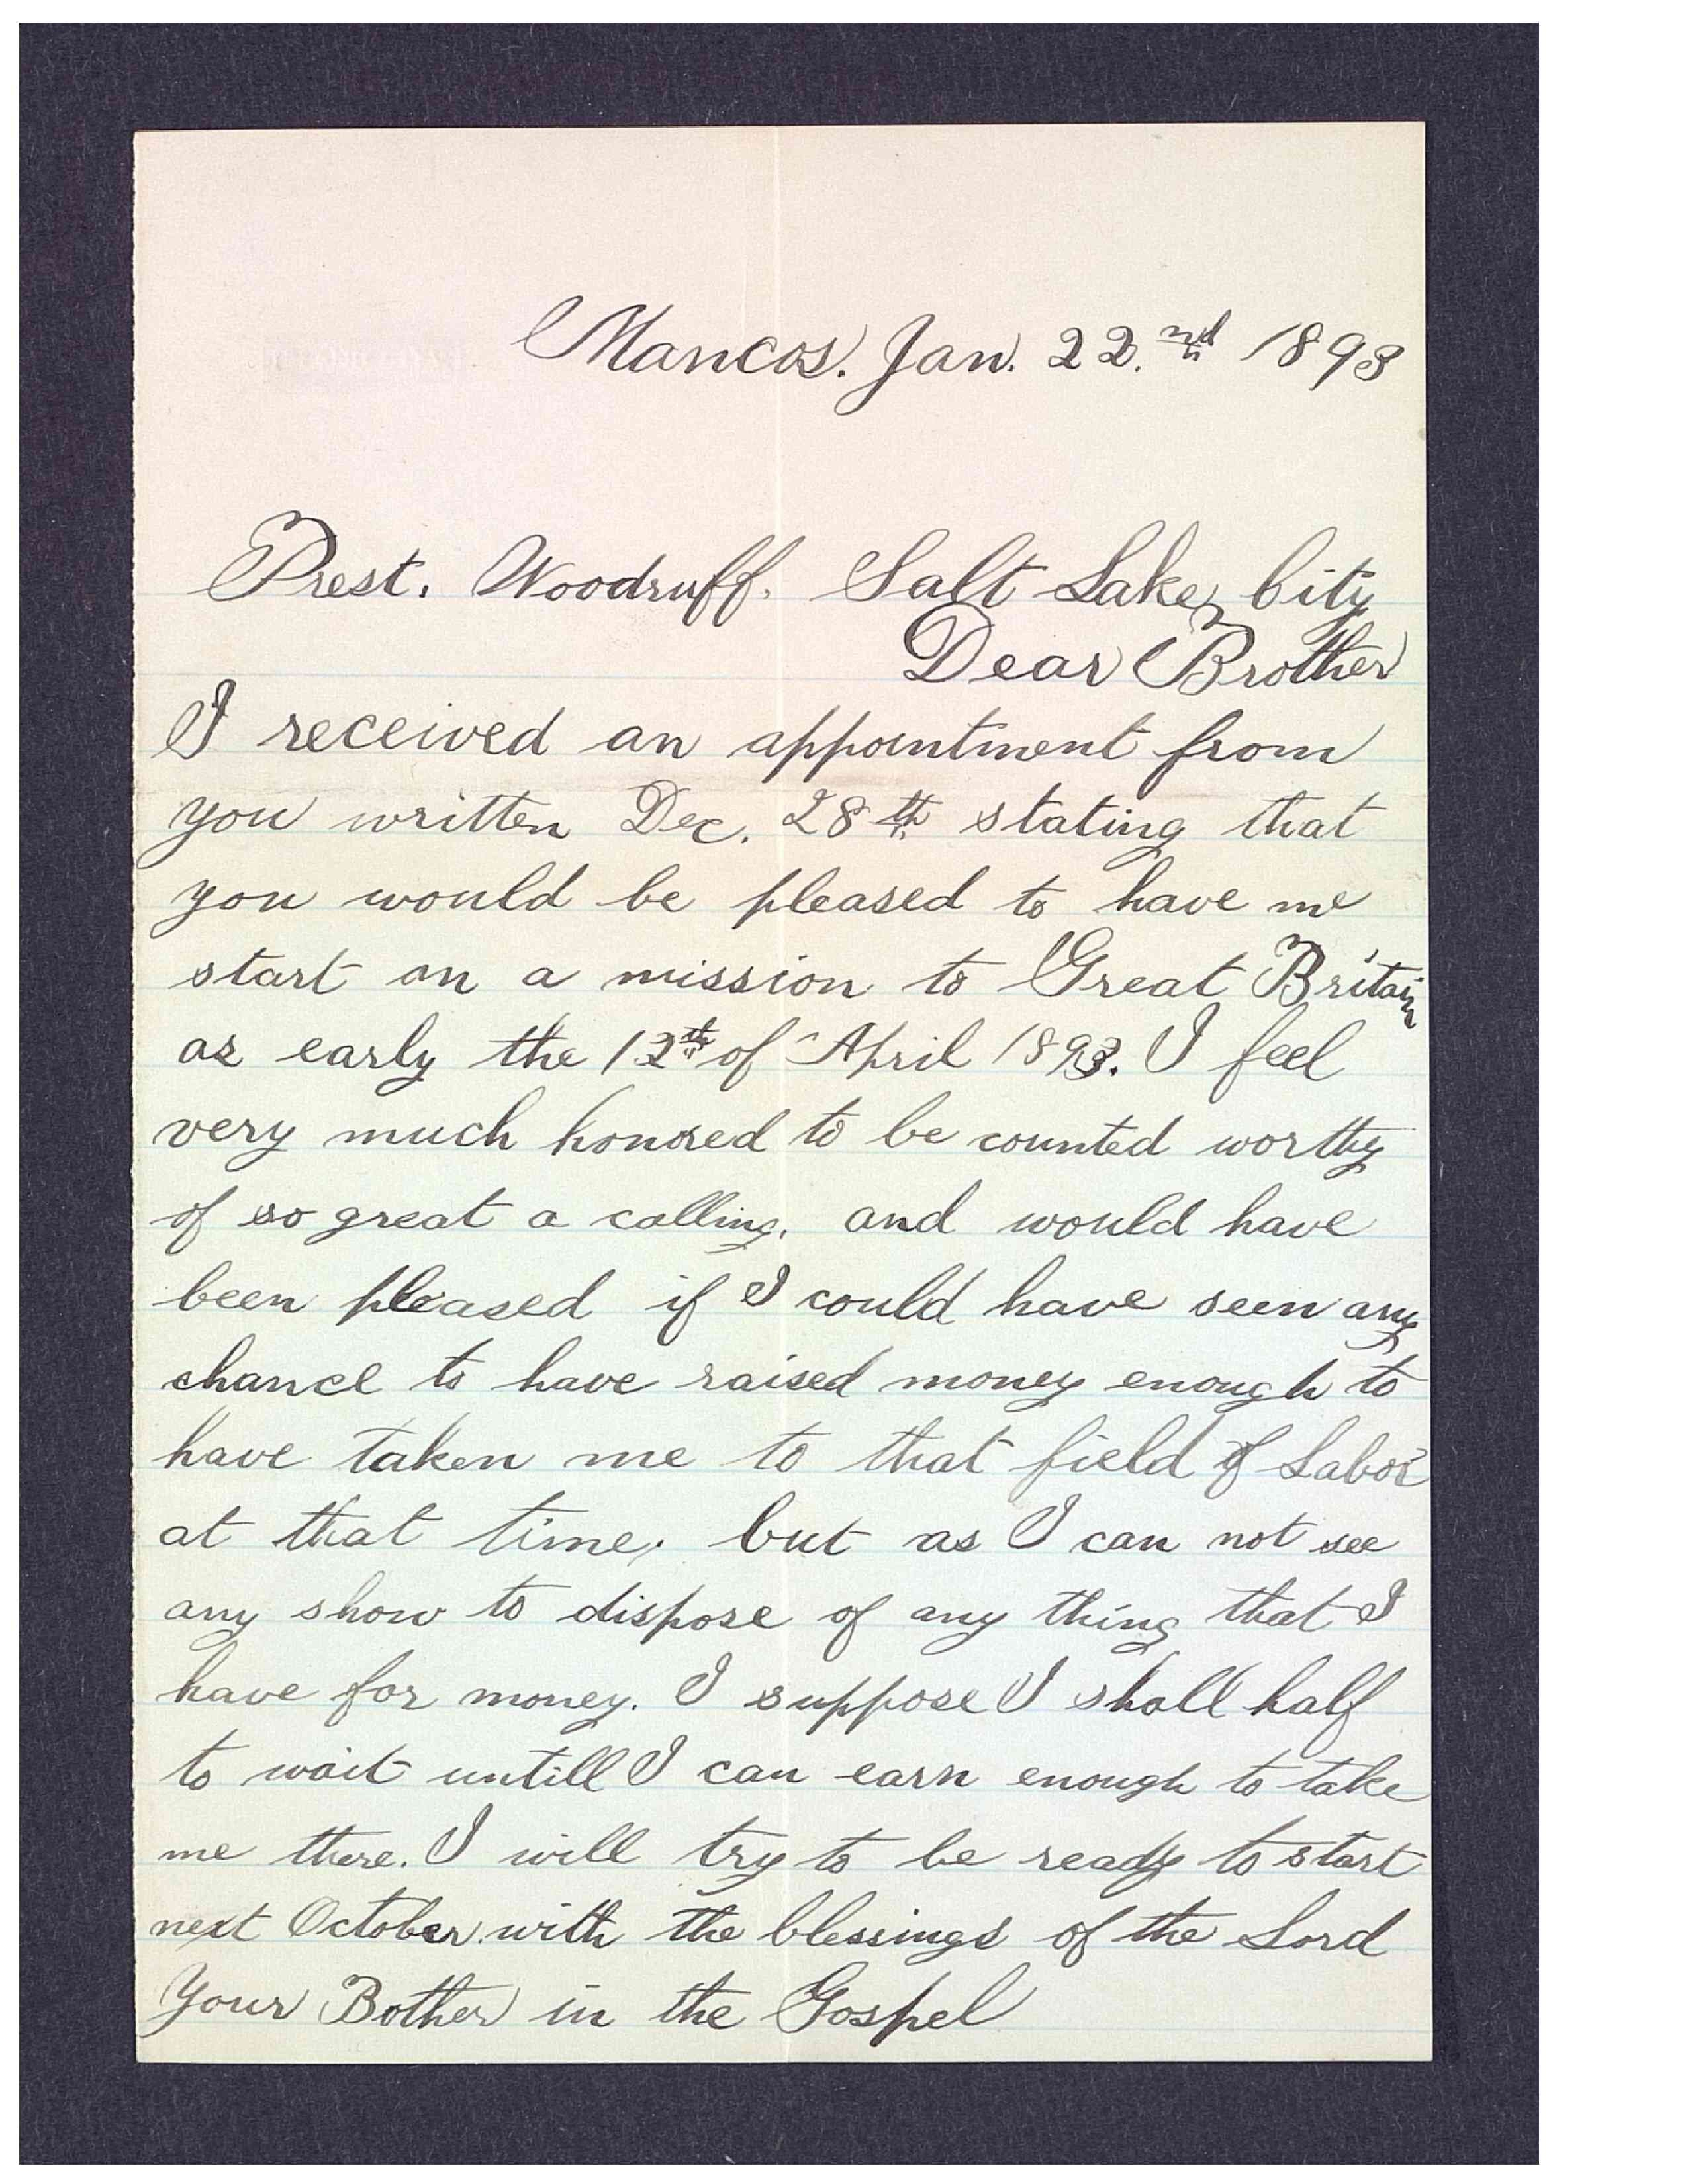 Mancos. Jan. 22.nd 1893
Prest. Woodruff. Salt Lake City
Dear Brother
I received an appointment from
you written Dec. 28th stating that
you would be pleased to have me
start on a mission to Great Britain
as early the 12th of April 1893. I feel
very much honored to be counted worthy
of so great a calling, and would have
been pleased if I could have seen any
chance to have raised money enough to
have taken me to that field of Labor
at that time, but as I can not see
any show to dispose of any thing that I
have for money. I suppose I shall half
to wait untill I can earn enough to take
me there. I will try to be ready to start
next October with the blessings of the Lord
Your Bother in the Gospel